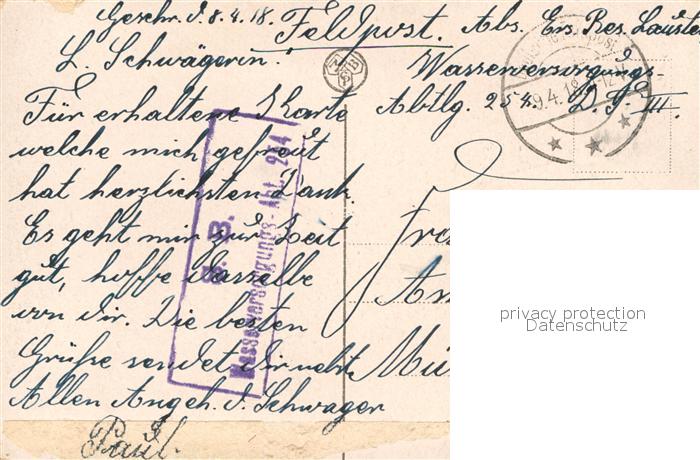 Geschr. d. 8.4.18. Feldpost. Abs. Ers. Res.
L. Schwägerin! Wasserversorgungs-
Für erhaltene Karte Abtlg. 254. D. F. III.
welche mich gefreut
hat herzlichsten Dank.
Es geht mir zur Zeit
gut, hoffe dasselbe
von dir. Die besten
Grüße sendet dir nebst
Allen Angeh. d. Schwager
Paul.
S. B.
Wasserversorgungs-Abt. 254
9.4.18
Fra
An
Mü
privacy protection
Datenschutz